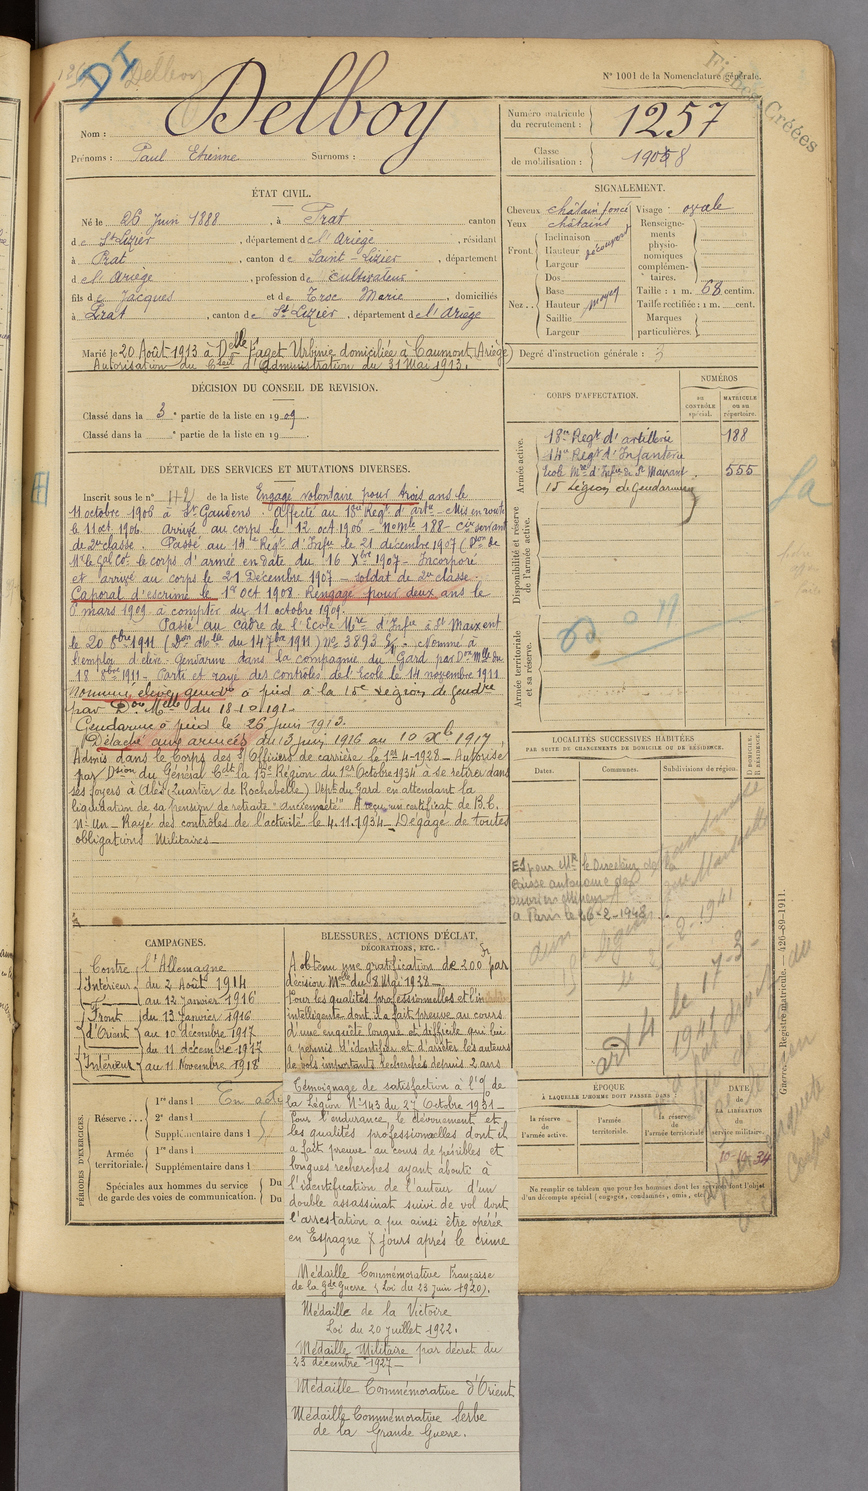 Delboy
N° 1001 de la Nomenclature générale.
Fiches Créées
Nom : Delboy
Prénoms : Paul Etienne Surnoms :
Numéro matricule du recrutement : 1257
Classe de mobilisation : 1908
ÉTAT CIVIL.
Né le 26 Juin 1888, à Prat canton
de St Lizier, département de l'Ariège, résidant
à Prat, canton de Saint-Lizier, département
de l'Ariège, profession de cultivateur
fils de Jacques et de Troc Marie, domiciliés
à Prat, canton de St Lizier, département de l'Ariège
Marié le 20 Août 1913 à Delle Faget Urbinie domiciliée à Caumont (Ariège)
Autorisation du Cseil d'administration du 31 Mai 1913.
SIGNALEMENT.
Cheveux châtain foncé
Yeux châtains
Front. Inclinaison
Hauteur découvert
Largeur
Nez. Dos
Base
Hauteur moyen
Saillie
Largeur
Visage : ovale
Renseignements physionomiques complémentaires.
Taille : 1 m. 68 centim.
Taille rectifiée : 1 m. cent.
Marques particulières.
Degré d'instruction générale : 3
DÉCISION DU CONSEIL DE REVISION.
Classé dans la 3e partie de la liste en 1909.
Classé dans la e partie de la liste en 19 .
CORPS D'AFFECTATION.
NUMÉROS
AU CONTRÔLE spécial.
MATRICULE OU AU répertoire.
Armée active.
18e Regt d'artillerie 188
14e Regt d'Infanterie
Ecole Mre d'Infie de St Maixent 555
15 Légion de Gendarmerie
Disponibilité et réserve de l'armée active.
Armée territoriale et sa réserve.
DÉTAIL DES SERVICES ET MUTATIONS DIVERSES.
Inscrit sous le n° 42 de la liste Engagé volontaire pour trois ans le
11 octobre 1906 à St Gaudens. Affecté au 18e Regt d'artie - Mis en route
le 11 oct 1906. Arrivé au corps le 12 oct 1906 - No Mle 188 - Cer servant
de 2e classe. Passé au 14e Regt d'Infie le 21 decembre 1907 (Don de
Mr le Gal Ct le corps d'armée en date du 16 Xbre 1907 - Incorporé
et arrivé au corps le 21 Décembre 1907 - soldat de 2e classe.
Caporal d'escrime le 1er oct 1908. Rengagé pour deux ans le
mars 1909 à compter du 11 octobre 1909.
Passé au cadre de l'Ecole Mre d'Infie à St Maixent
le 20 8bre 1911 (Don Mlle du 14 7bre 1911) No 3893 Nommé à
l'emploi d'élève-Gendarme dans la compagnie du Gard par Don Mlle du
18 8bre 1911 - Parti et rayé des contrôles de l'Ecole le 14 novembre 1911
Nommé élève gendre à pied à la 15e Légion de Gendre
par Don Mlle du 18 10 191
Gendarme à pied le 26 juin 1913.
Détaché aux armées du 13 juin 1916 au 10 Xb 1917
Admis dans le Corps des S/Officiers de carrière le 1er 4-1928 - Autorisé
par Dsion du Général Cdt la 15e Région du 1er Octobre 1934 à se retirer dans
ses foyers à Alès (Quartier de Rochebelle) Dépt du Gard en attendant la
liquidation de sa pension de retraite "ancienneté" A reçu un certificat de B.C.
N° Un - Rayé des contrôles de l'activité le 4.11.1934 - Dégagé de toutes
obligations Militaires -
LOCALITÉS SUCCESSIVES HABITÉES
PAR SUITE DE CHANGEMENTS DE DOMICILE OU DE RÉSIDENCE.
Dates. Communes. Subdivisions de région. D DOMICILE. R RÉSIDENCE.
ES pour Mr le Directeur de la
Caisse autonome des
ouvriers Mineurs
à Paris le 6-2-1948
art 4 le 17-3-
1941
CAMPAGNES.
Contre l'Allemagne
Intérieur du 2 Août 1914
au 12 janvier 1916
Front d'Orient du 13 Janvier 1916
au 10 décembre 1917
Intérieur du 11 décembre 1917
au 11 Novembre 1918
BLESSURES, ACTIONS D'ÉCLAT,
DÉCORATIONS, ETC.
A obtenu une gratification de 200 fr par
décision Mlle du 8 Mai 1928 -
Pour les qualités professionnelles et l'in
intelligente dont il a fait preuve au cours
d'une enquête longue et difficile qui lui
a permis d'identifier et d'arrêter les auteurs
de vols importants recherchés depuis 2 ans
Témoignage de satisfaction à l'o/ de
la Légion N° 143 du 27 Octobre 1931 -
Pour l'endurance, le dévouement et
les qualités professionnelles dont il
a fait preuve au cours de pénibles et
longues recherches ayant abouti à
l'identification de l'auteur d'un
double assassinat suivi de vol dont
l'arrestation a pu ainsi être opérée
en Espagne 7 jours après le crime
Médaille Commémorative Française
de la Gde Guerre (Loi du 23 juin 1920).
Médaille de la Victoire
Loi du 20 juillet 1922.
Médaille Militaire par décret du
23 décembre 1927 -
Médaille Commémorative d'Orient
Médaille Commémorative Serbe
de la Grande Guerre.
PÉRIODES D'EXERCICES.
Réserve 1re dans l
2e dans l
Supplémentaire dans l
Armée territoriale. 1re dans l
Supplémentaire dans l
Spéciales aux hommes du service de garde des voies de communication. Du
Du
ÉPOQUE
À LAQUELLE L'HOMME DOIT PASSER DANS :
la réserve de l'armée active.
l'armée territoriale.
la réserve de l'armée territoriale.
DATE de LA LIBÉRATION du service militaire.
Ne remplir ce tableau que pour les hommes dont les services font l'objet
d'un décompte spécial (engagés, condamnés, omis, etc.)
Guerre. — Registre matricule. — 426-89-1911.